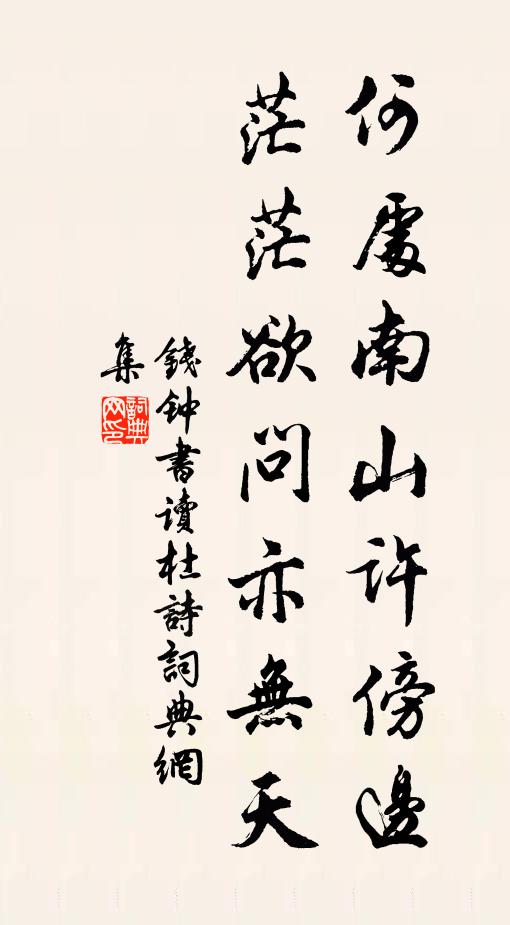 何處南山許傍邊
茫茫欲問亦無天
錢钟書讀杜詩詞典網
集
詞典網印